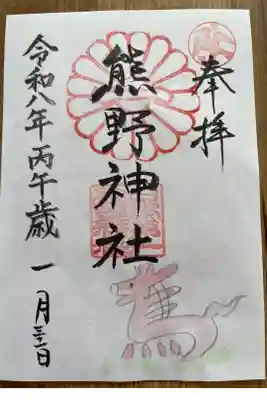 奉拝
熊野神社
令和八年 丙午歳 一月三十一日